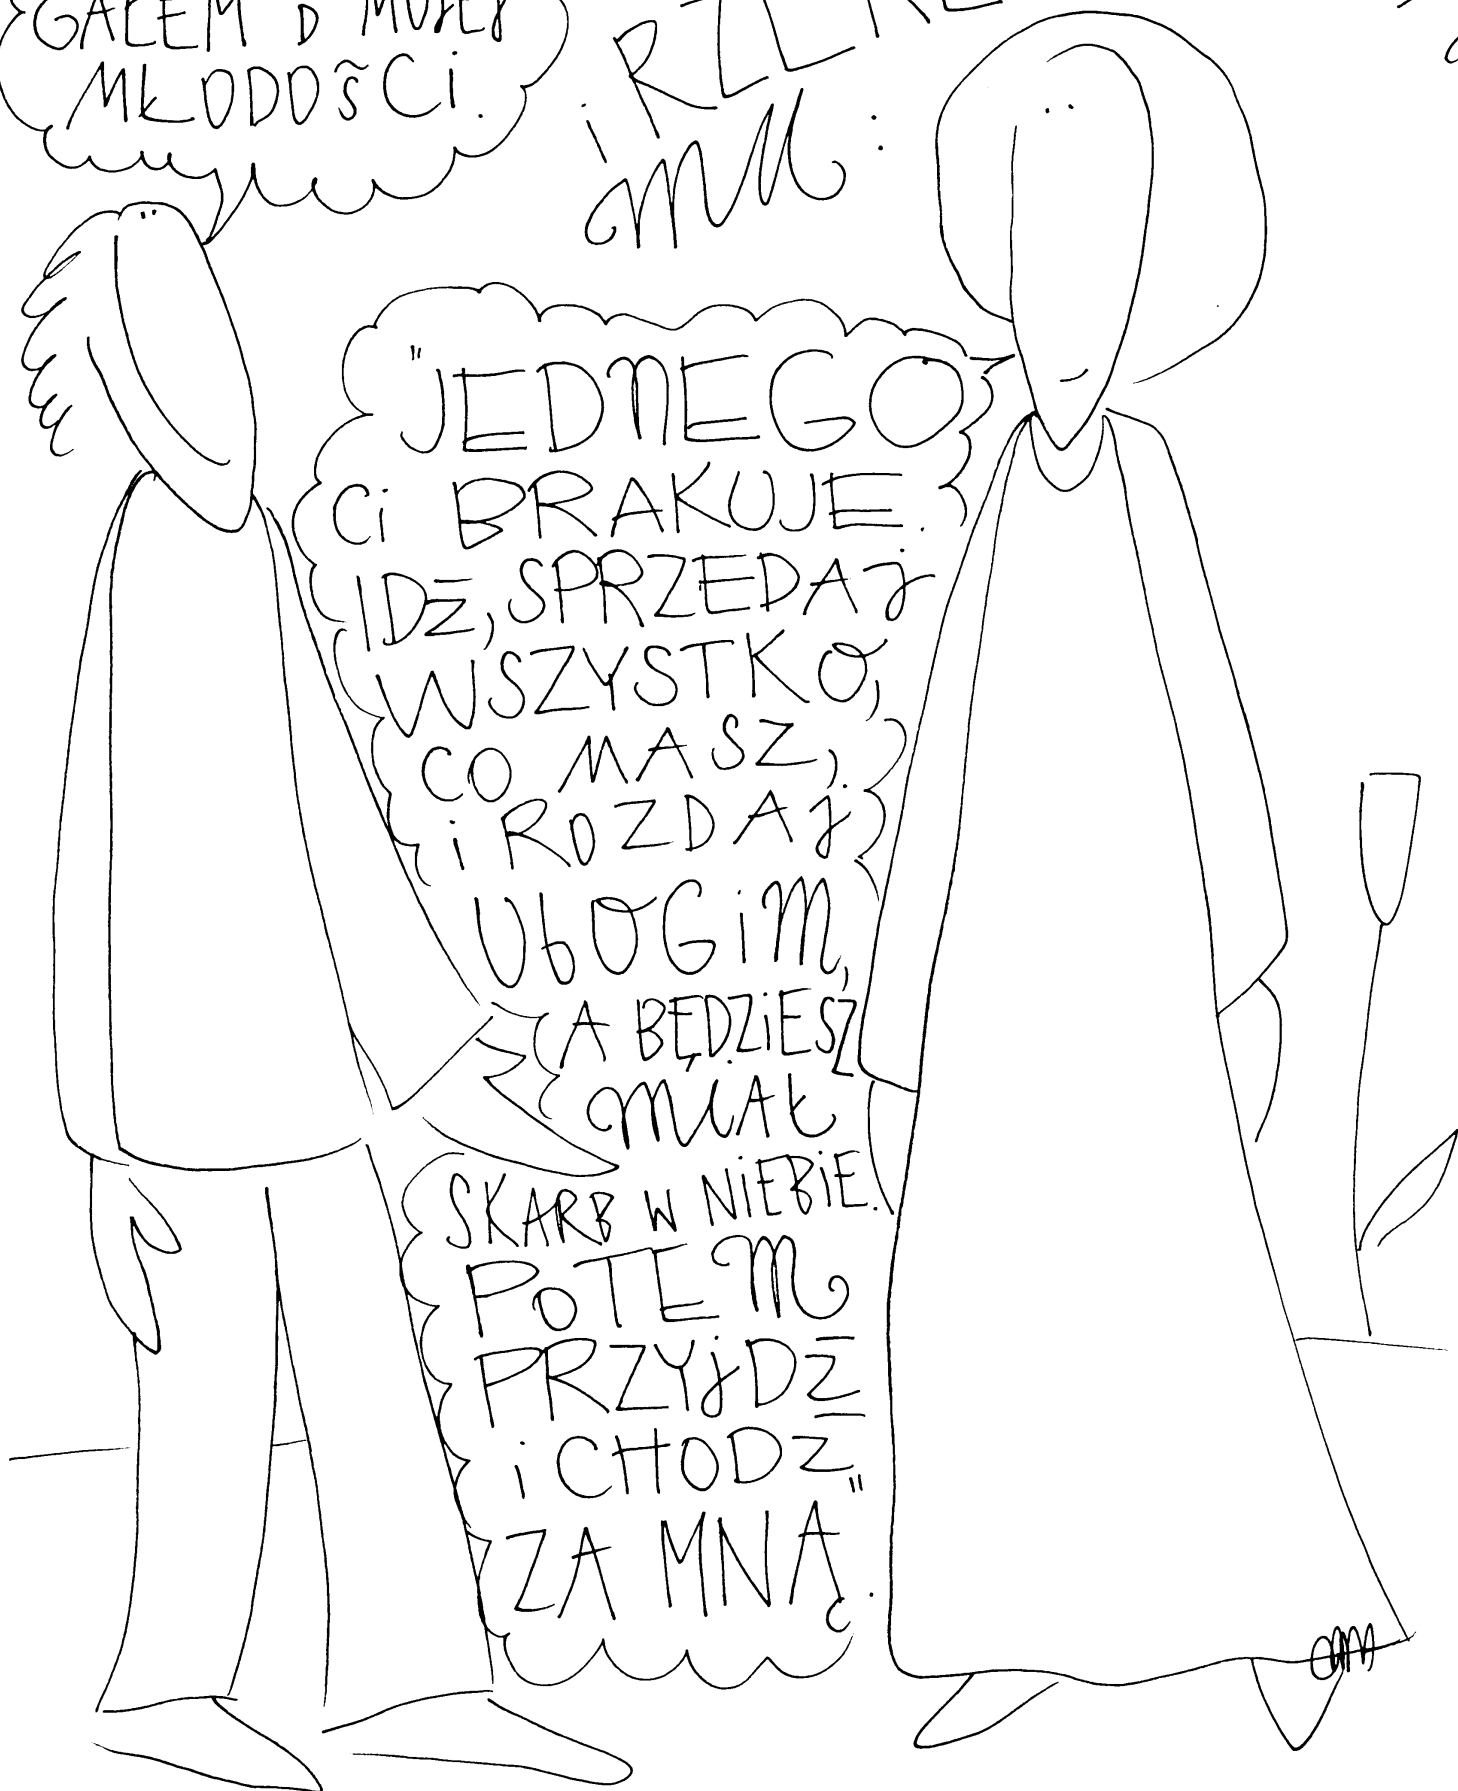 GAŁEM D MOJEJ
MŁODOŚCI.
i RZE
mu:
"JEDNEGO
Ci BRAKUJE.
IDŹ, SPRZEDAj
WSZYSTKO,
CO MASZ,
i ROZDAj
UbOGiM,
A BĘDZiESZ
MIAŁ
SKARB W NiEBiE.
POTEM
PRZYjDŹ
i CHODŹ
ZA MNĄ".